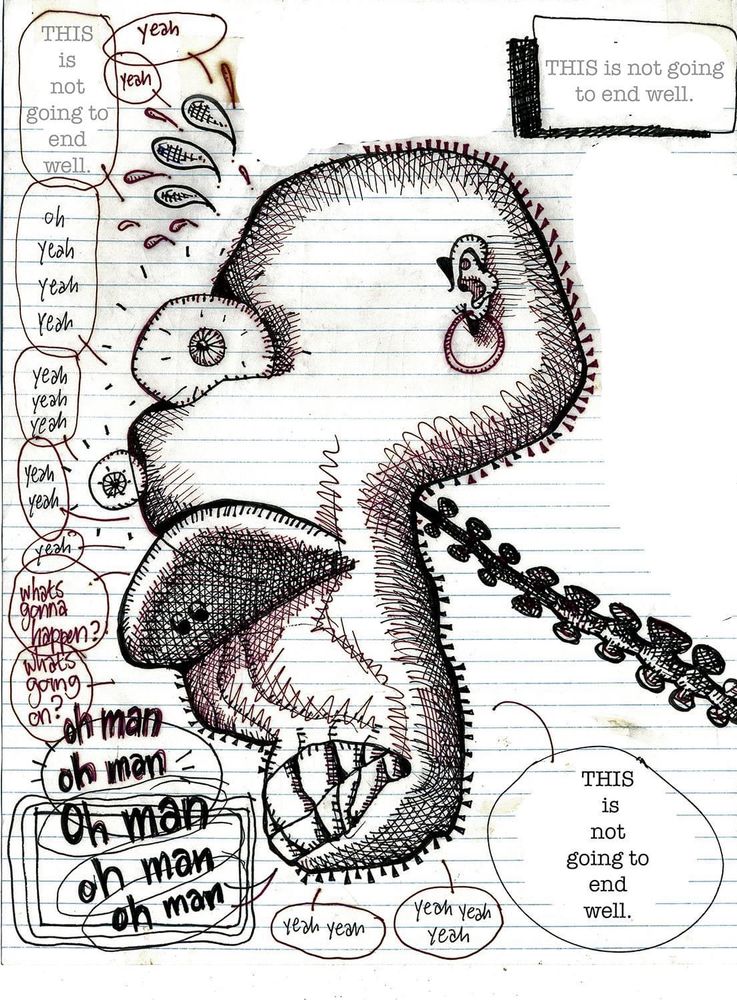 THIS
is
not
going to
end
well.
yeah
yeah
THIS is not going
to end well.
oh
yeah
yeah
yeah
yeah
yeah
yeah
yeah
yeah
yeah?
whats
gonna
happen?
what's
going
on?
oh man
oh man
oh man
oh man
oh man
yeah yeah
yeah yeah
yeah
THIS
is
not
going to
end
well.